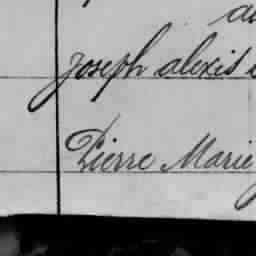 joseph alexis
Pierre Marie